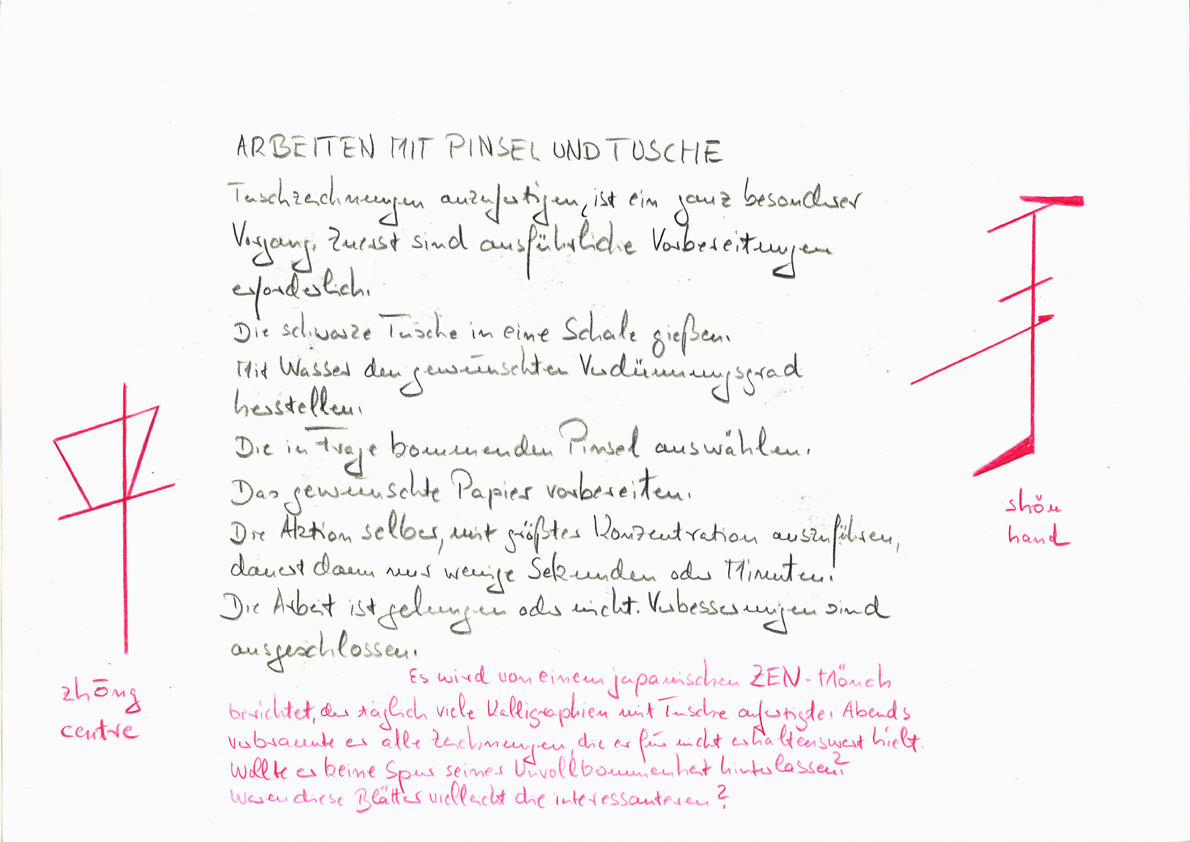 ARBEITEN MIT PINSEL UND TUSCHE
Tuschzeichnungen anzufertigen, ist ein ganz besonderer
Vorgang. Zuerst sind ausführliche Vorbereitungen
erforderlich.
Die schwarze Tusche in eine Schale gießen.
Mit Wasser den gewünschten Verdünnungsgrad
herstellen.
Die in Frage kommenden Pinsel auswählen.
Das gewünschte Papier vorbereiten.
Die Aktion selber, mit größter Konzentration auszuführen,
dauert dann nur wenige Sekunden oder Minuten.
Die Arbeit ist gelungen oder nicht. Verbesserungen sind
ausgeschlossen.
Es wird von einem japanischen ZEN-Mönch
berichtet, der täglich viele Kalligraphien mit Tusche anfertigte. Abends
verbrannte er alle Zeichnungen, die er für nicht erhaltenswert hielt.
Wollte er keine Spur seiner Unvollkommenheit hinterlassen?
Waren diese Blätter vielleicht die interessanteren?
zhōng
centre
shǒu
hand